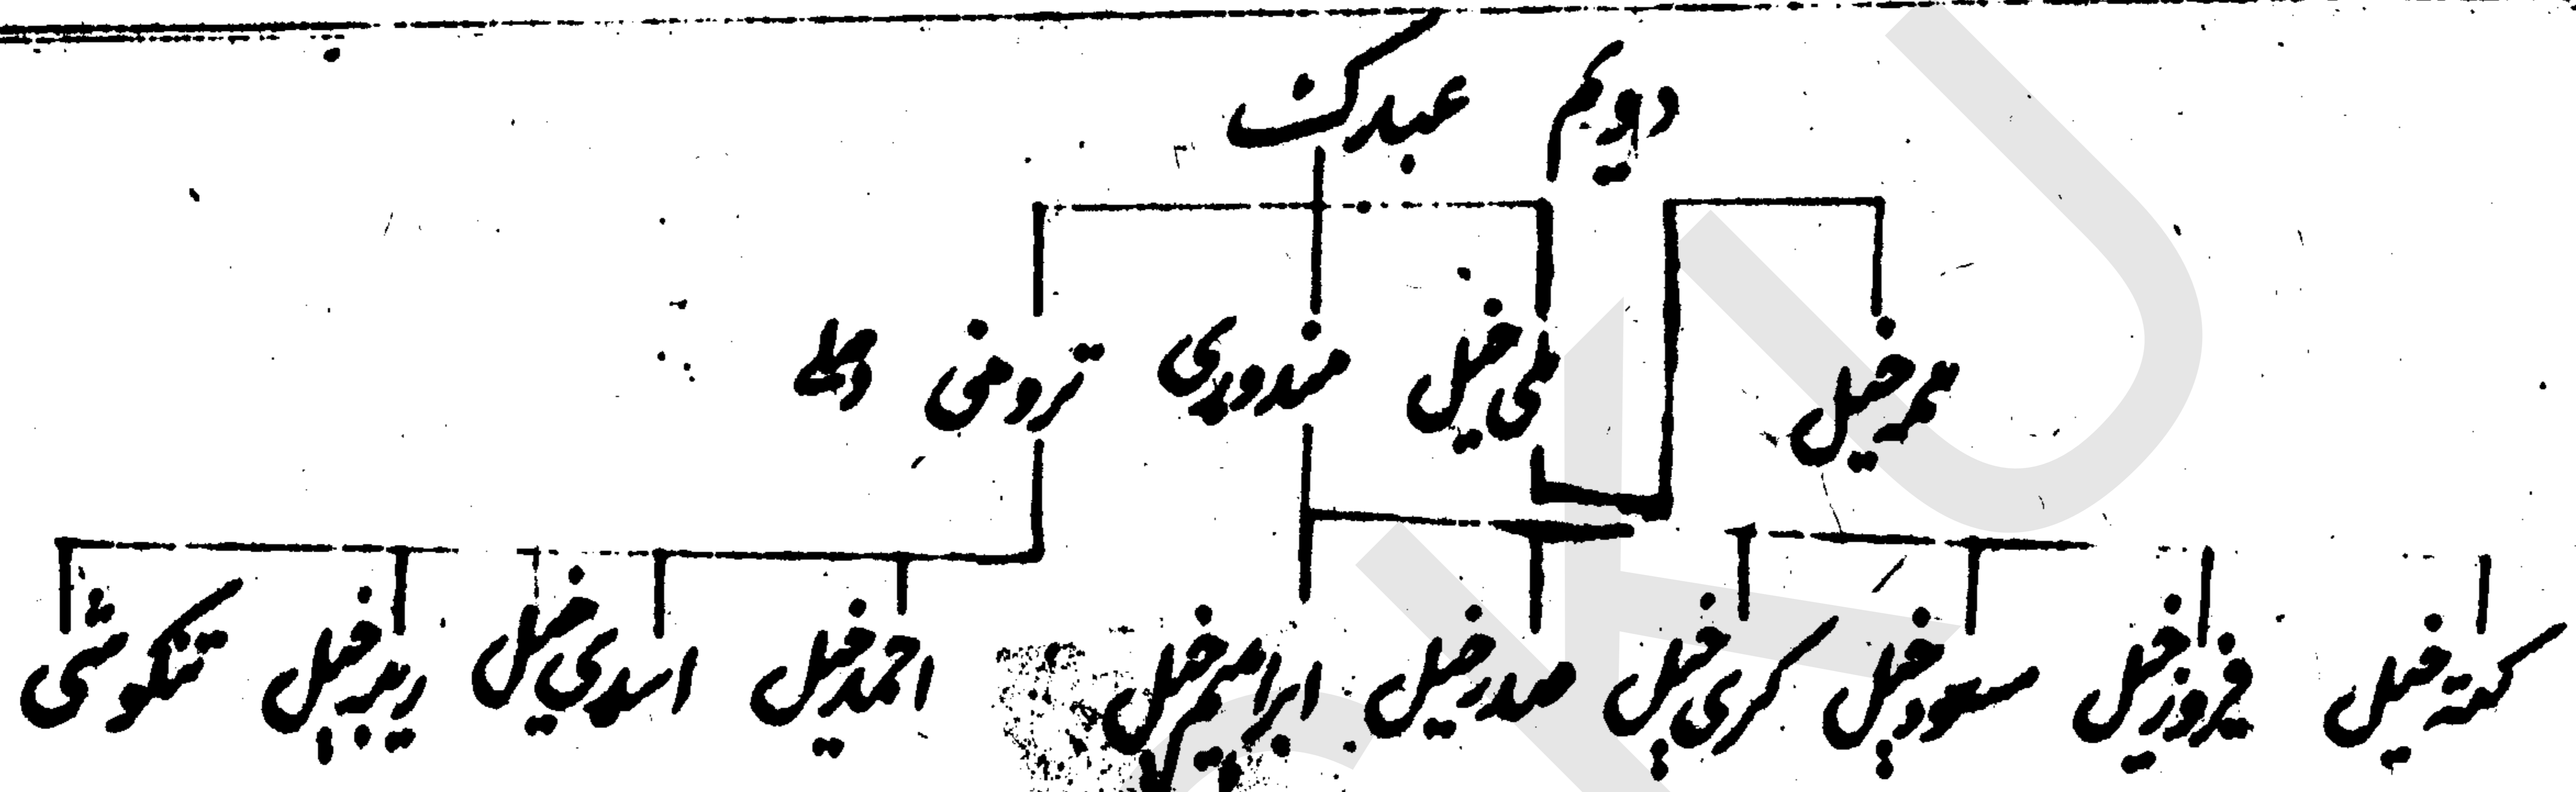 دویم عبدک
عمر خیل ملی خیل مندوری تروخی
کته خیل فیروز خیل مسعود خیل کری خیل صدر خیل ابراہیم خیل احمد خیل اسدی خیل تنکوشی